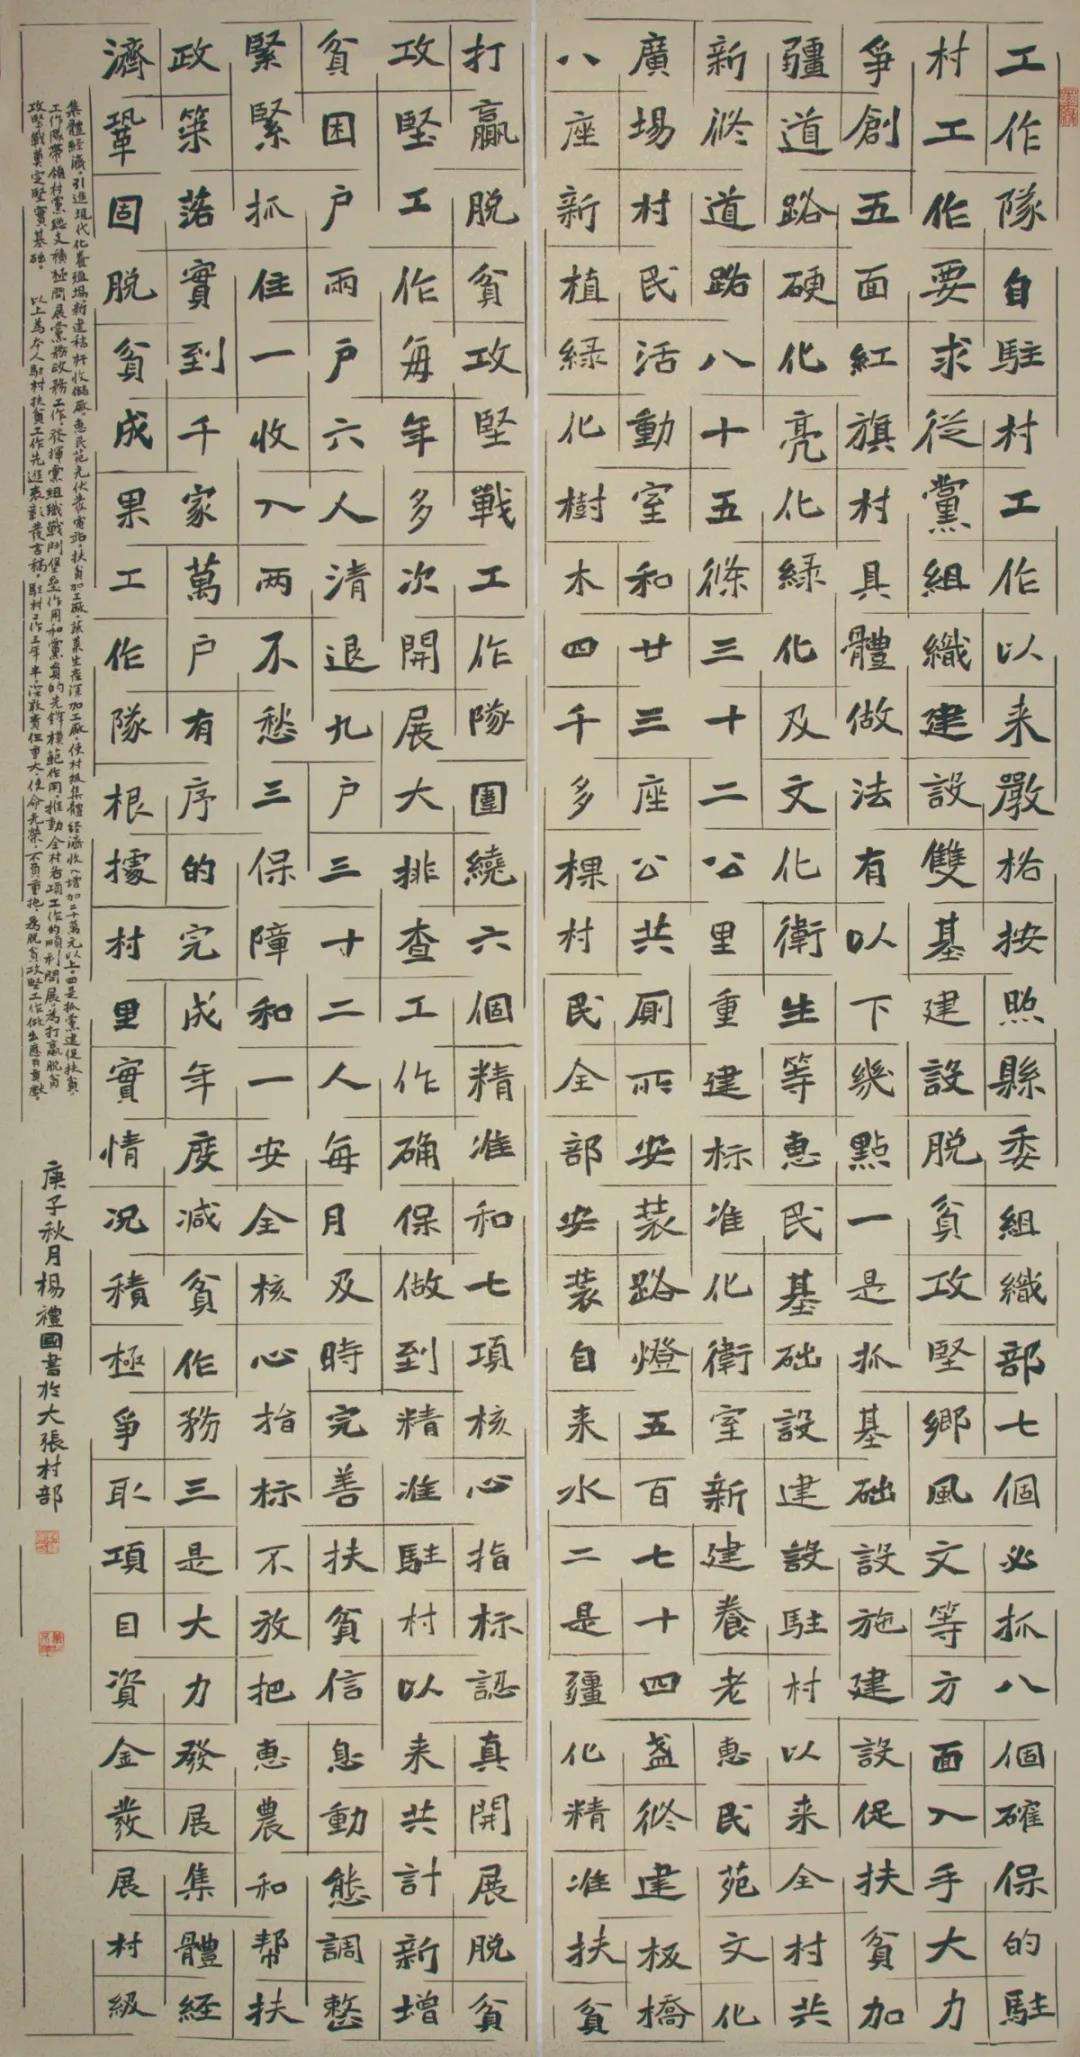 工作隊自駐村工作以来嚴格按照縣委組織部七個必抓八個確保的駐
村工作要求從黨組織建設雙基建設脱貧攻堅鄉風文等方面入手大力
爭創五面紅旗村具體做法有以下幾點一是抓基础設施建設促扶貧加
疆道路硬化亮化緑化及文化衛生等惠民基础設建設駐村以来全村共
新修道路八十五條三十二公里重建标准化衛室新建養老惠民苑文化
廣場村民活動室和廿三座公共厕所安装路燈五百七十四盏修建板橋
八座新植緑化樹木四千多棵村民全部安装自来水二是疆化精准扶貧
打贏脱貧攻堅戰工作隊圍繞六個精准和七項核心指标認真開展脱貧
攻堅工作每年多次開展大排查工作确保做到精准駐村以来共計新增
貧困户兩户六人清退九户三十二人每月及時完善扶貧信息動態調整
緊緊抓住一收入兩不愁三保障和一安全核心指标不放把惠農和帮扶
政策落實到千家萬户有序的完成年度减貧作務三是大力發展集體經
濟鞏固脱貧成果工作隊根據村里實情况積極爭取項目資金發展村級
集體經濟，引進現代化養殖場新建秸秆收儲廠，惠民苑光伏發電站，扶貧加工廠，蔬菜生産深加工廠，使村級集體經濟收入增加二十萬元以上。四是抓黨建促扶貧，
工作隊帶領村黨總支積極開展黨務政務工作，發揮黨組織戰鬥堡壘作用和黨員的先鋒模範作用，推動全村各項工作的順利開展，為打贏脱貧
攻堅戰奠定堅實基础。 以上為本人駐村扶貧工作先進表彰發言稿，駐村工作三年半，深感責任重大，使命光榮，不負重托，為脱貧攻堅工作做出應有貢獻。
庚子秋月楊禮國書於大張村部